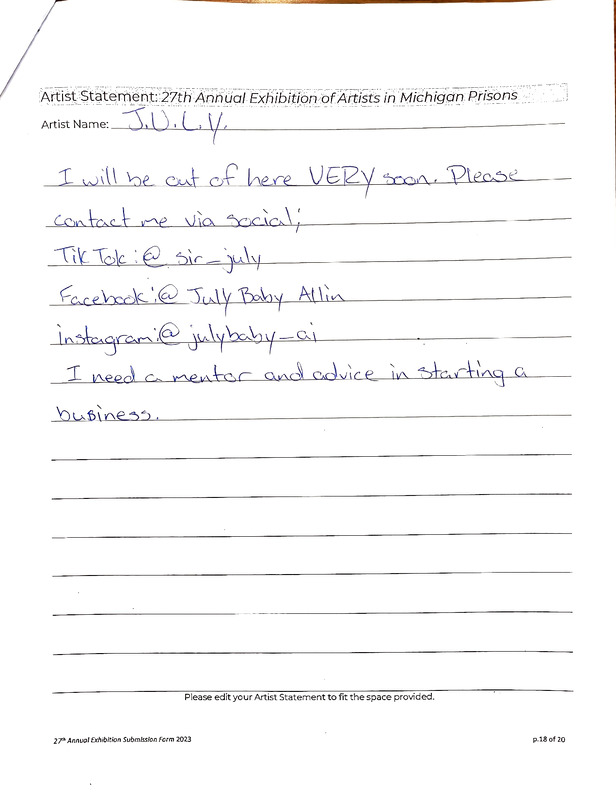 Artist Statement: 27th Annual Exhibition of Artists in Michigan Prisons
Artist Name: J.U.L.Y.
I will be out of here VERY soon. Please
contact me via social;
TikTok:@ sir_july
Facebook:@ July Baby Allin
instagram:@ julybaby_ai
I need a mentor and advice in starting a
business.
Please edit your Artist Statement to fit the space provided.
27th Annual Exhibition Submission Form 2023
p.18 of 20